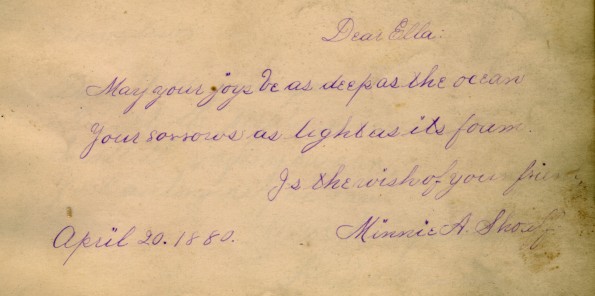 Dear Ella:
May your joys be as deep as the ocean
Your sorrows as light as its foam.
Is the wish of your friend
April 20. 1880. Minnie A.